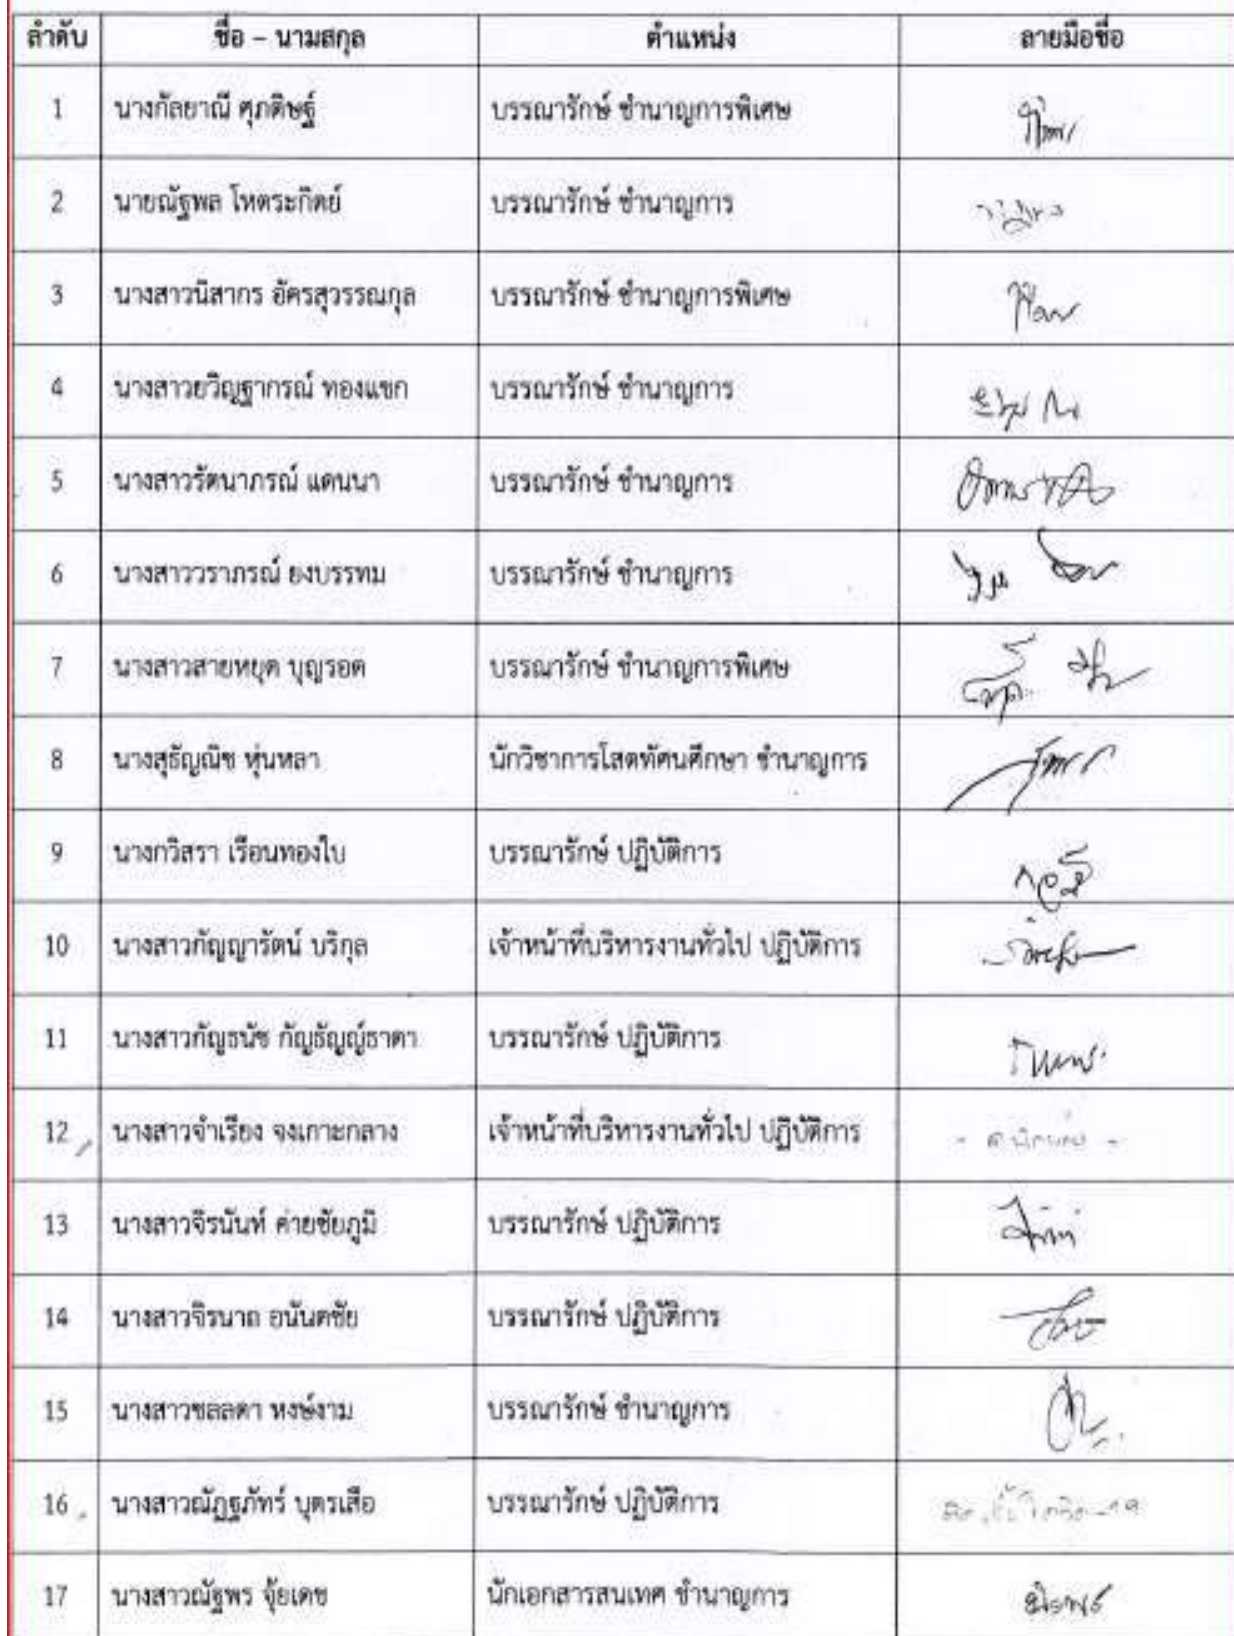 ลำดับ ชื่อ – นามสกุล ตำแหน่ง ลายมือชื่อ
1 นางกัลยาณี ศุภดิษฐ์ บรรณารักษ์ ชำนาญการพิเศษ
2 นายณัฐพล โหตระกิตย์ บรรณารักษ์ ชำนาญการ
3 นางสาวนิสากร อัครสุวรรณกุล บรรณารักษ์ ชำนาญการพิเศษ
4 นางสาวยวิญฐากรณ์ ทองแขก บรรณารักษ์ ชำนาญการ
5 นางสาวรัตนาภรณ์ แดนนา บรรณารักษ์ ชำนาญการ
6 นางสาววราภรณ์ ยงบรรทม บรรณารักษ์ ชำนาญการ
7 นางสาวสายหยุด บุญรอด บรรณารักษ์ ชำนาญการพิเศษ
8 นางสุธัญณิช หุ่นหลา นักวิชาการโสตทัศนศึกษา ชำนาญการ
9 นางกวิสรา เรือนทองใบ บรรณารักษ์ ปฏิบัติการ
10 นางสาวกัญญารัตน์ บริกุล เจ้าหน้าที่บริหารงานทั่วไป ปฏิบัติการ
11 นางสาวกัญธนัช กัญธัญญ์ธาดา บรรณารักษ์ ปฏิบัติการ
12 นางสาวจำเรียง จงเกาะกลาง เจ้าหน้าที่บริหารงานทั่วไป ปฏิบัติการ
13 นางสาวจิรนันท์ ค่ายชัยภูมิ บรรณารักษ์ ปฏิบัติการ
14 นางสาวจิรนาถ อนันตชัย บรรณารักษ์ ปฏิบัติการ
15 นางสาวชลลดา หงษ์งาม บรรณารักษ์ ชำนาญการ
16 นางสาวณัฏฐภัทร์ บุตรเสือ บรรณารักษ์ ปฏิบัติการ
17 นางสาวณัฐพร จุ้ยเดช นักเอกสารสนเทศ ชำนาญการ